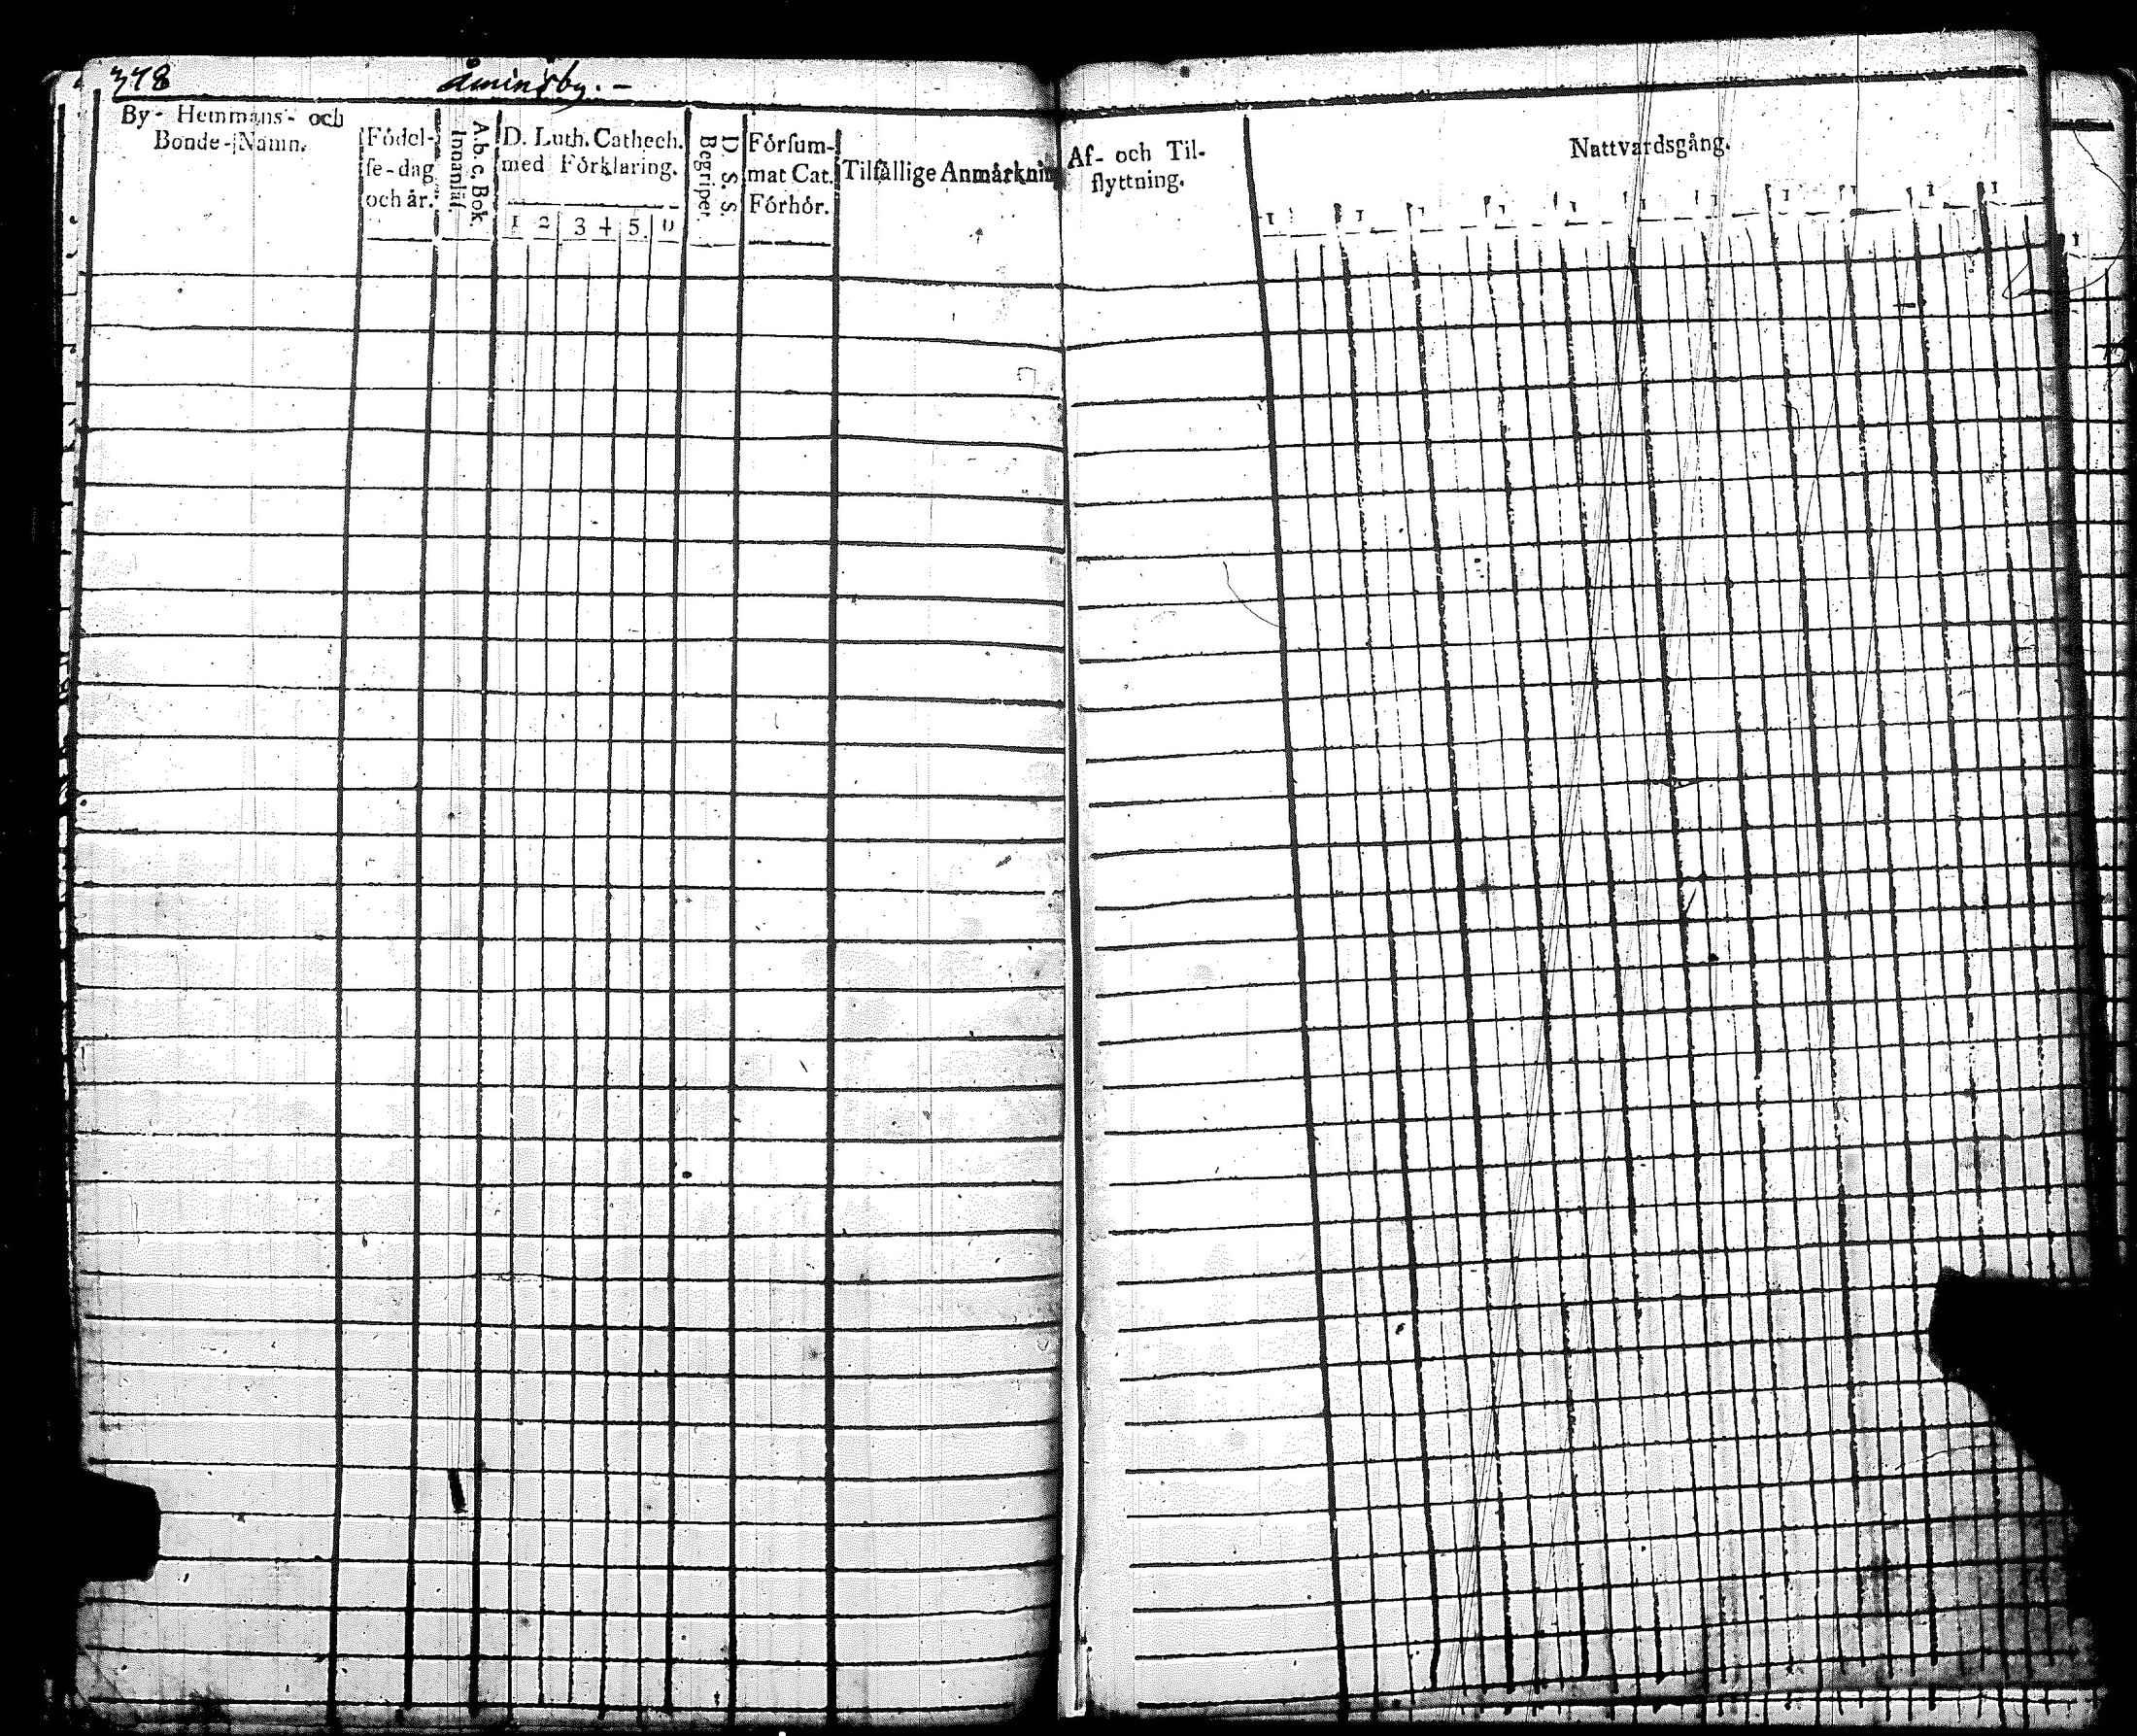 378
Åminsby. -
By- Hemmans- och
Bonde-Namn.
Födel-
se-dag
och år.
A.b.c. Bok.
Innanläs.
D. Luth. Cathech.
med Förklaring.
1 2 3 4 5. 0
D. S. S.
Begriper.
Försum-
mat Cat.
Förhör.
Tilfällige Anmärknin
Af- och Til-
flyttning.
Nattvardsgång.
1 1 1 1 1 1 1 1 1 1 1
1